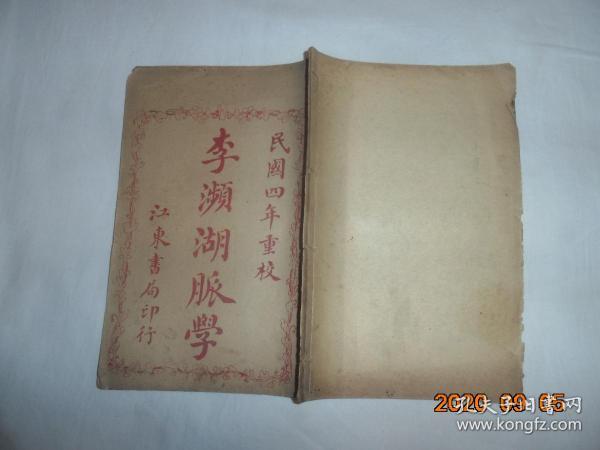 民國四年重校
李瀕湖脈學
江東書局印行
2020 09 05
孔夫子旧书网
www.kongfz.com